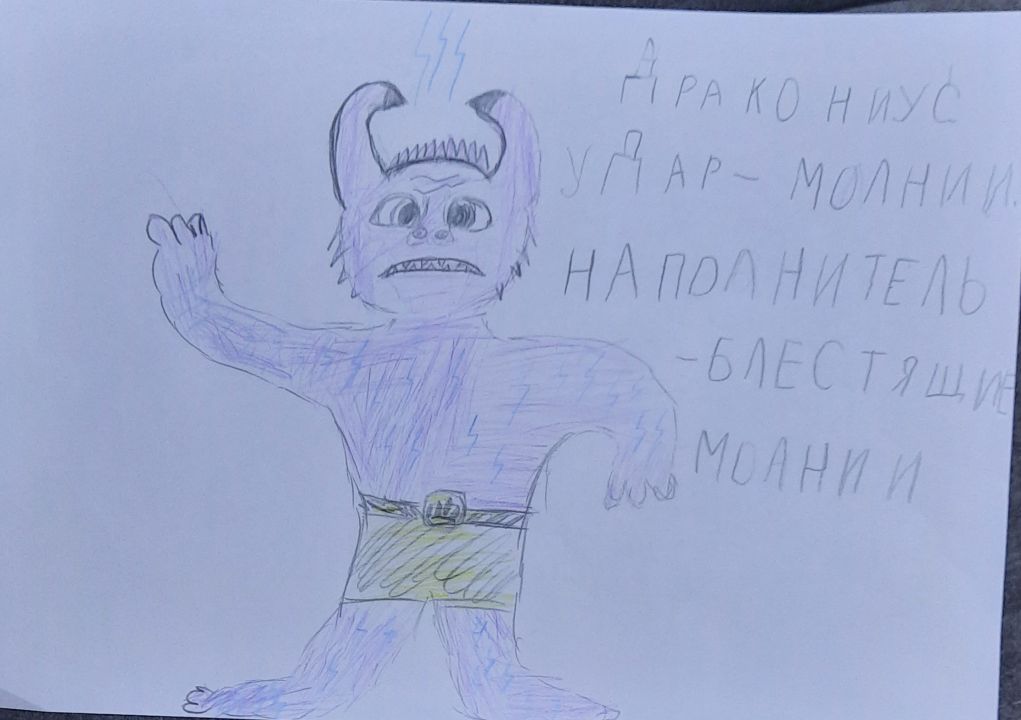 ДРАКОНИУС
УДАР- МОЛНИИ.
НАПОЛНИТЕЛЬ
-БЛЕСТЯЩИЕ
МОЛНИИ